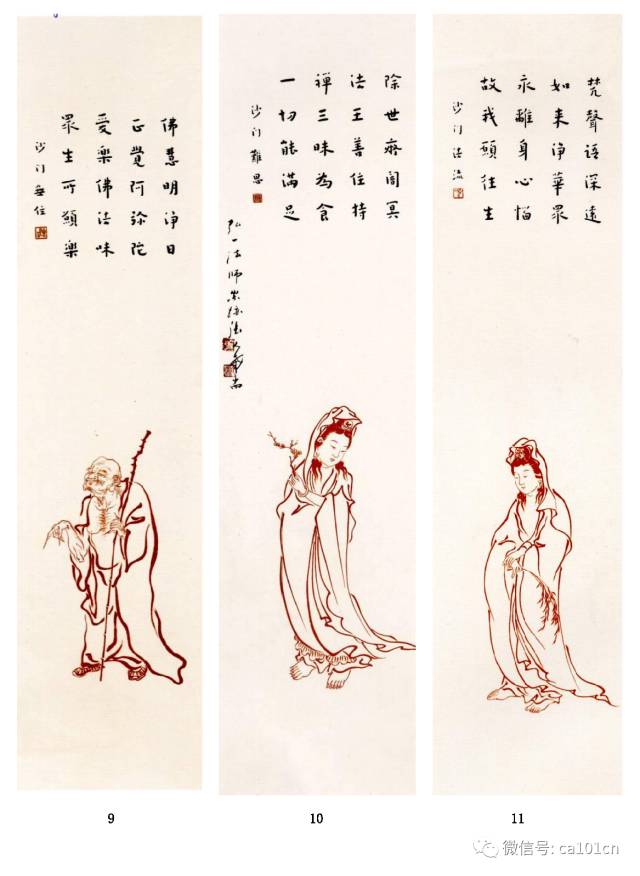 佛慧明淨日
正覺阿弥陀
愛樂佛法味
眾生所願樂
沙门無住
除世癡闇冥
法王善住持
禪三昧為食
一切能滿足
沙门難思
弘一法師
梵聲语深遠
如来淨華眾
永離身心惱
故我願往生
沙门
9
10
11
微信号: ca101cn